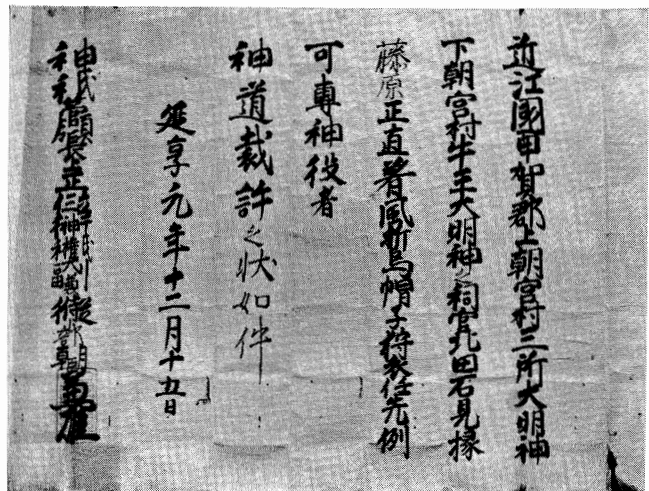 近江國甲賀郡上朝宮村三所大明神
下朝宮村牛王大明神之祠官片田石見掾
藤原正直着風折烏帽子狩衣任先例
可専神役者
神道裁許之状如件
延享元年十二月十五日
神祇管領長上従二位